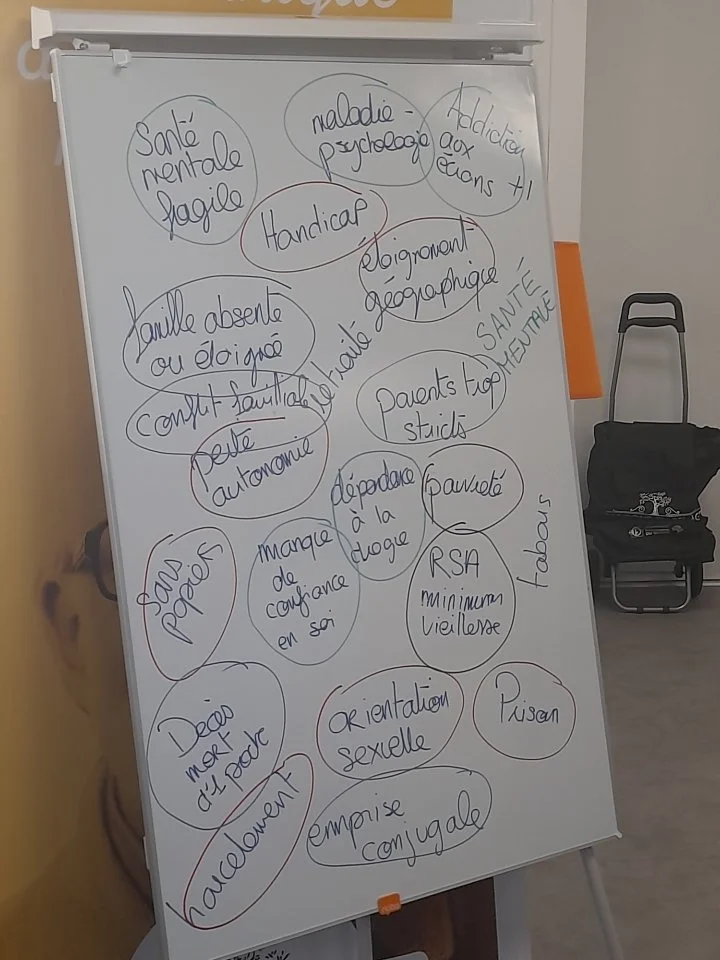 Santé
mentale
fragile
maladie -
psychologie
Addiction
aux
écrans +1
Handicap
éloignement
géographique
SANTÉ
MENTALE
famille absente
ou éloignée
retraité
conflit familial
parents trop
stricts
perte
autonomie
dépendance
à la
drogue
pauvreté
tabous
Sans
papiers
manque
de
confiance
en soi
RSA
minimum
vieillesse
Décès
mort
d'1 proche
orientation
sexuelle
Prison
harcelement
emprise
conjugale